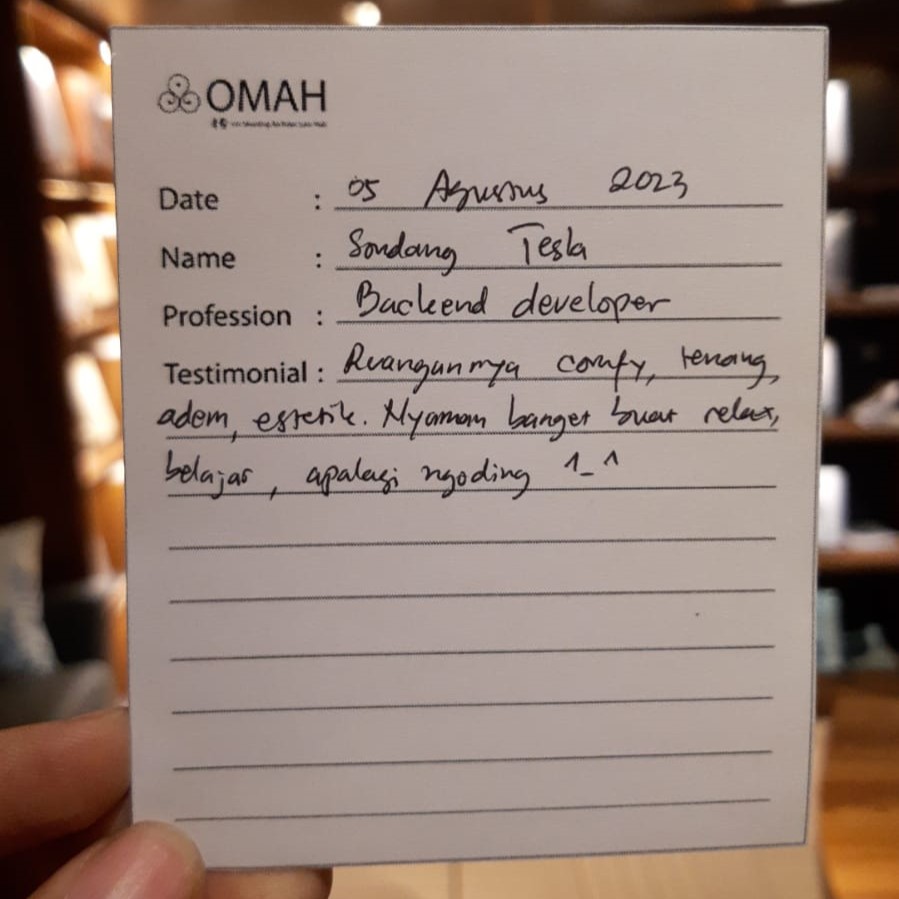 OMAH
Date : 05 Agustus 2023
Name : Sondang Tesla
Profession : Backend developer
Testimonial : Ruangannya comfy, tenang,
adem, estetik. Nyaman banget buat relax,
belajar, apalagi ngoding ^_^